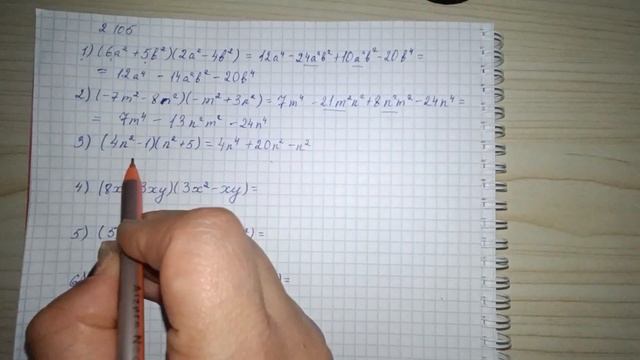 2 10б
1) (6a² + 5b²)(2a² - 4b²) = 12a⁴ - 24a²b² + 10a²b² - 20b⁴ =
= 12a⁴ - 14a²b² - 20b⁴
2) (-7m² - 8n²)(-m² + 3n²) = 7m⁴ - 21m²n² + 8n²m² - 24n⁴ =
= 7m⁴ - 13n²m² - 24n⁴
3) (4n² - 1)(n² + 5) = 4n⁴ + 20n² - n²
4) (8x 3xy)(3x² - xy) =
5) (5 ²) =
) =